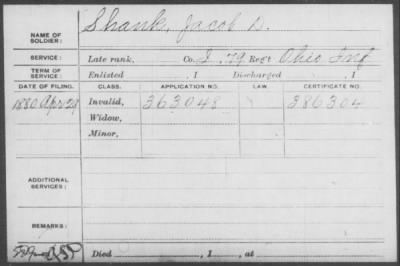 NAME OF SOLDIER: Shank, Jacob D.
SERVICE: Late rank, Co. I, 79 Reg't Ohio Inf
TERM OF SERVICE: Enlisted , 1 Discharged , 1
DATE OF FILING. CLASS. APPLICATION NO. LAW. CERTIFICATE NO.
1880 Apr 29 Invalid, 363048 386304
Widow,
Minor,
ADDITIONAL SERVICES:
REMARKS:
Died , 1 , at